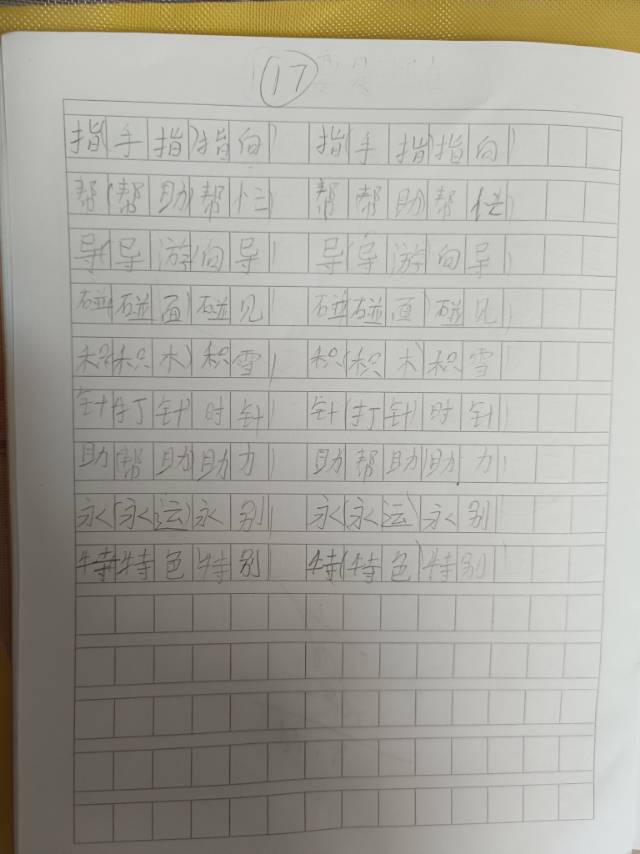 17
指(手指)指向) 指(手指)指向)
帮(帮助帮忙) 帮帮助帮忙)
导(导游(向导 导(导游(向导)
碰碰面)碰见 碰碰面)碰见)
积积木)积雪) 积(积木)积雪
针打针)时针 针(打针)时针)
助帮助助力) 助帮助助力)
永(永运)永别) 永(永运)永别
特特色特别 特(特色)特别